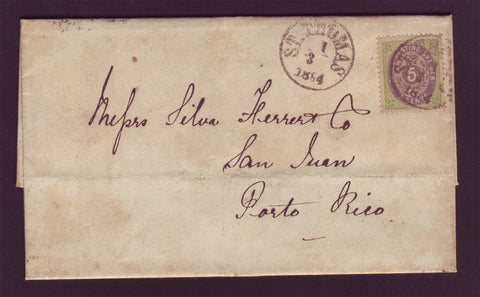 ST. THOMAS
1
3
1884
5
Messrs Silva Ferrer & Co
San Juan
Porto Rico